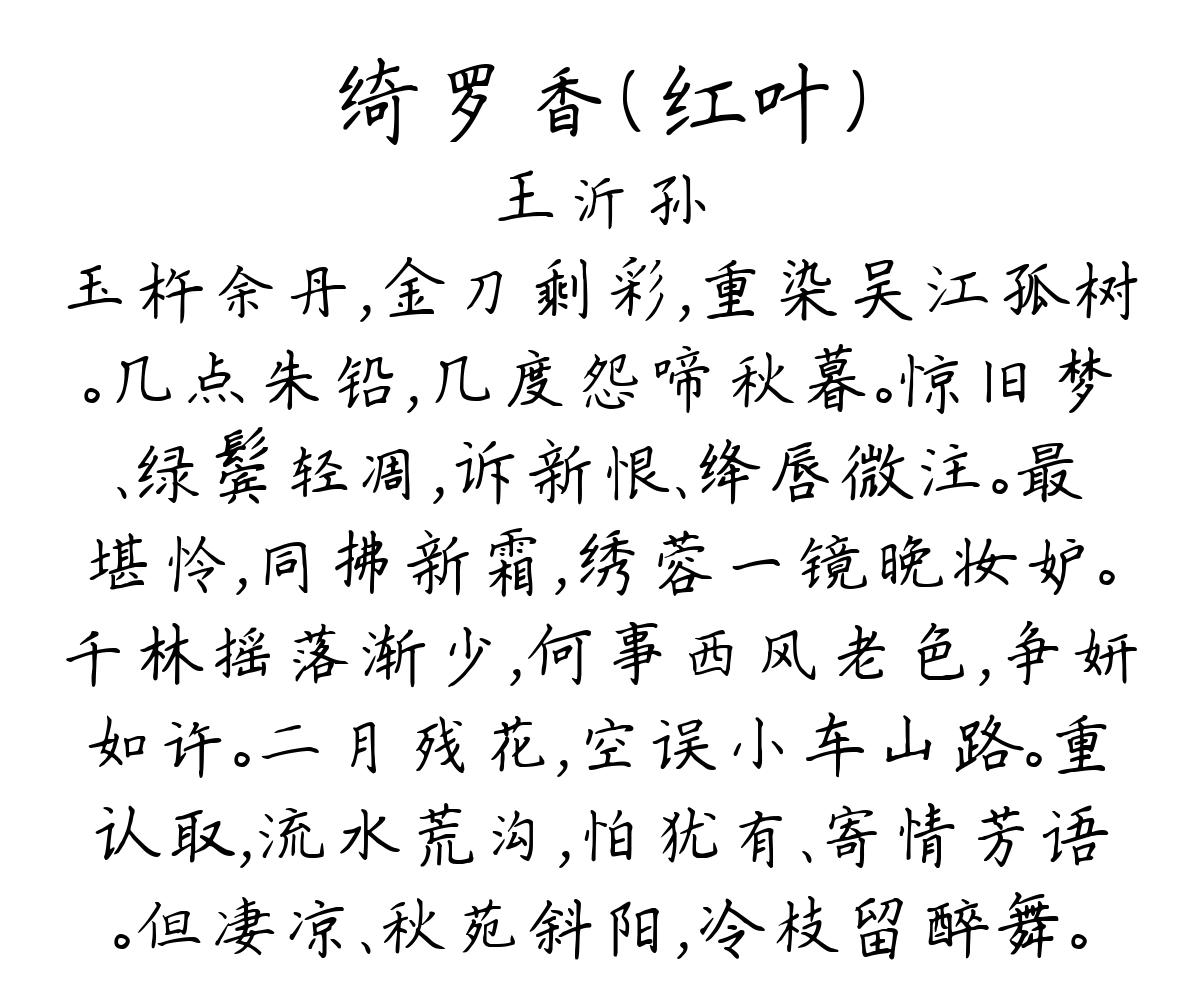 绮罗香(红叶)
王沂孙
玉杵余丹,金刀剩彩,重染吴江孤树
。几点朱铅,几度怨啼秋暮。惊旧梦
、绿鬓轻凋,诉新恨、绛唇微注。最
堪怜,同拂新霜,绣蓉一镜晚妆妒。
千林摇落渐少,何事西风老色,争妍
如许。二月残花,空误小车山路。重
认取,流水荒沟,怕犹有、寄情芳语
。但凄凉、秋苑斜阳,冷枝留醉舞。